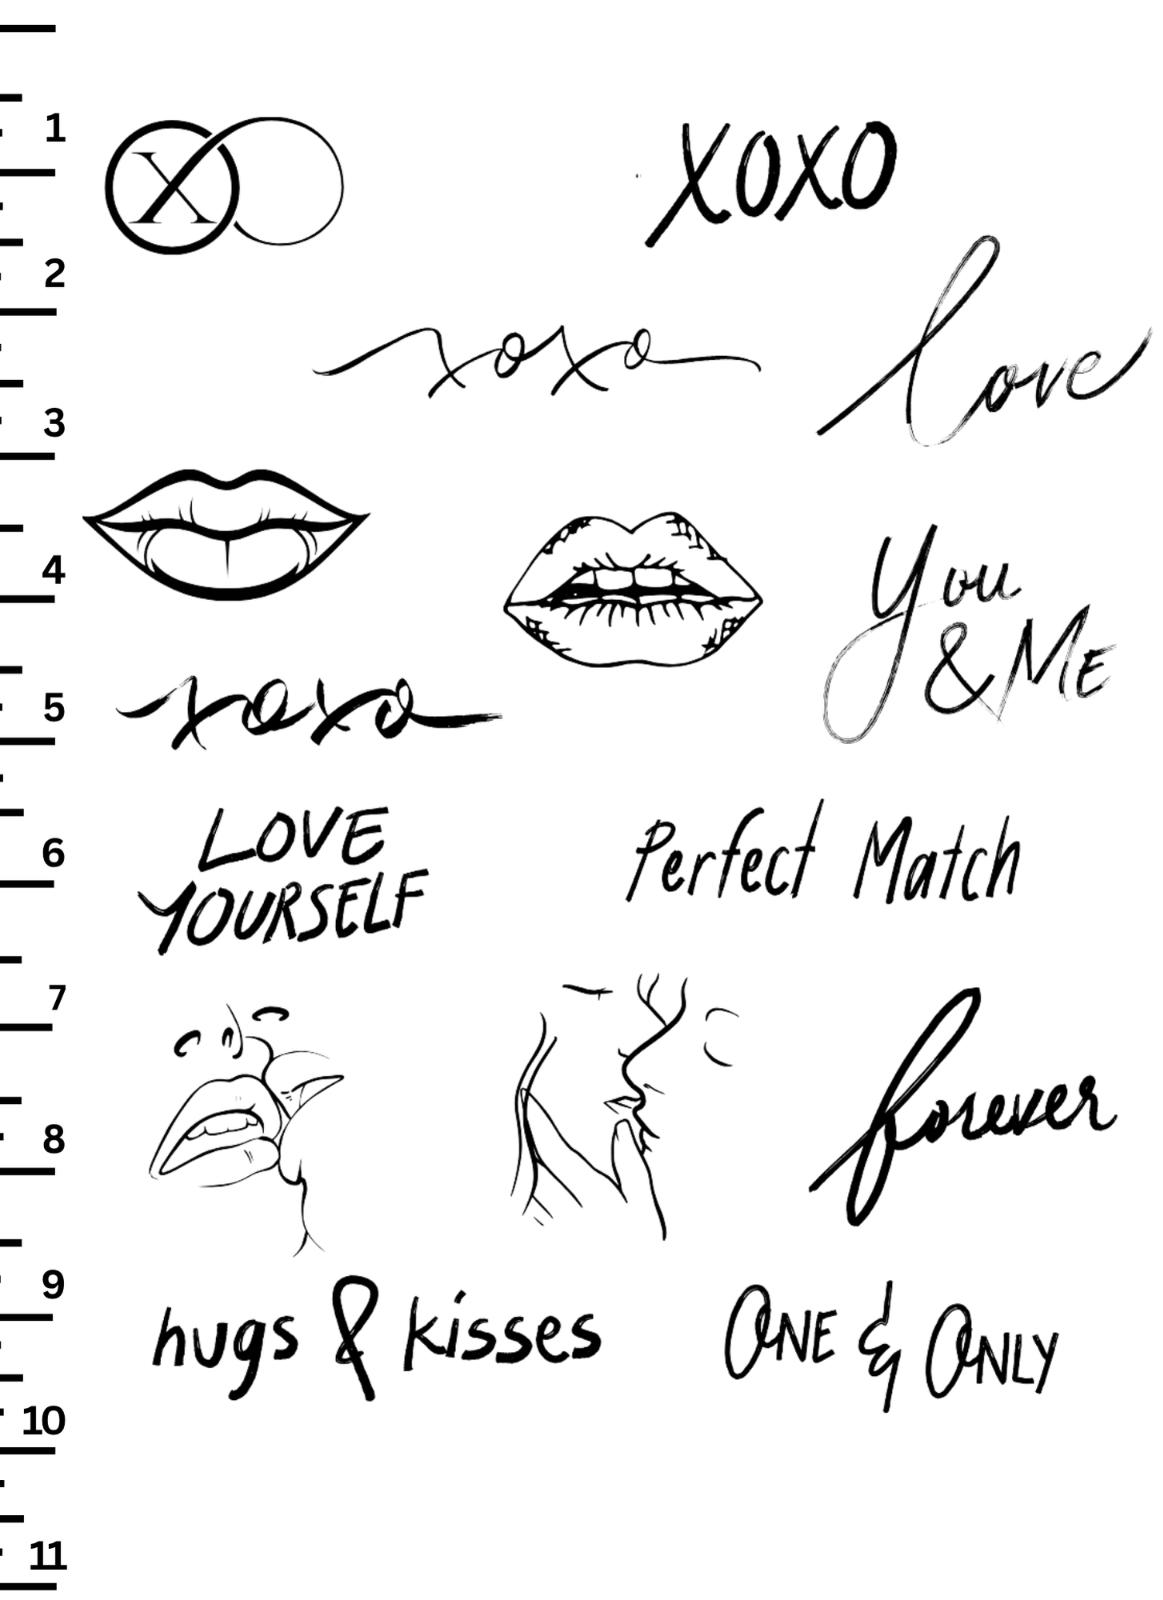 1
XO
XOXO
2
xoxo
love
3
4
You
& ME
xoxo
5
LOVE
YOURSELF
6
Perfect Match
7
forever
8
9
hugs & kisses
ONE & ONLY
10
11